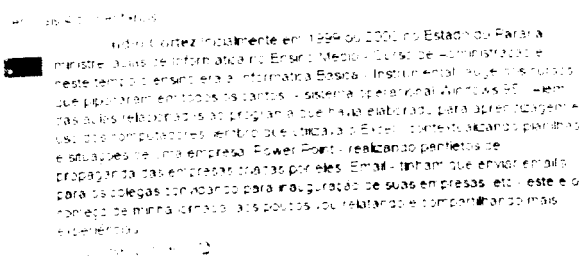 Cortez Inicialmente em 1999 ou 2000 no Estado do Paraná
ministrei aulas de Informática no Ensino Médio - Curso de Administração e
neste tempo o ensino era a Informática Básica - Instrumental
que pipocaram em todos os cantos - sistema operacional Windows 95. Além
das aulas relacionadas ao programa que havia elaborado para aprendizagem e
uso dos computadores lembro que utilizava o Excel - contextualizando planilhas
e situações de uma empresa, Power Point - realizando panfletos de
propaganda das empresas criadas por eles. Email - tinham que enviar emails
para os colegas convidando para inauguração de suas empresas, etc - este é o
começo de minha jornada, aos poucos vou relatando e compartilhando mais
experiências